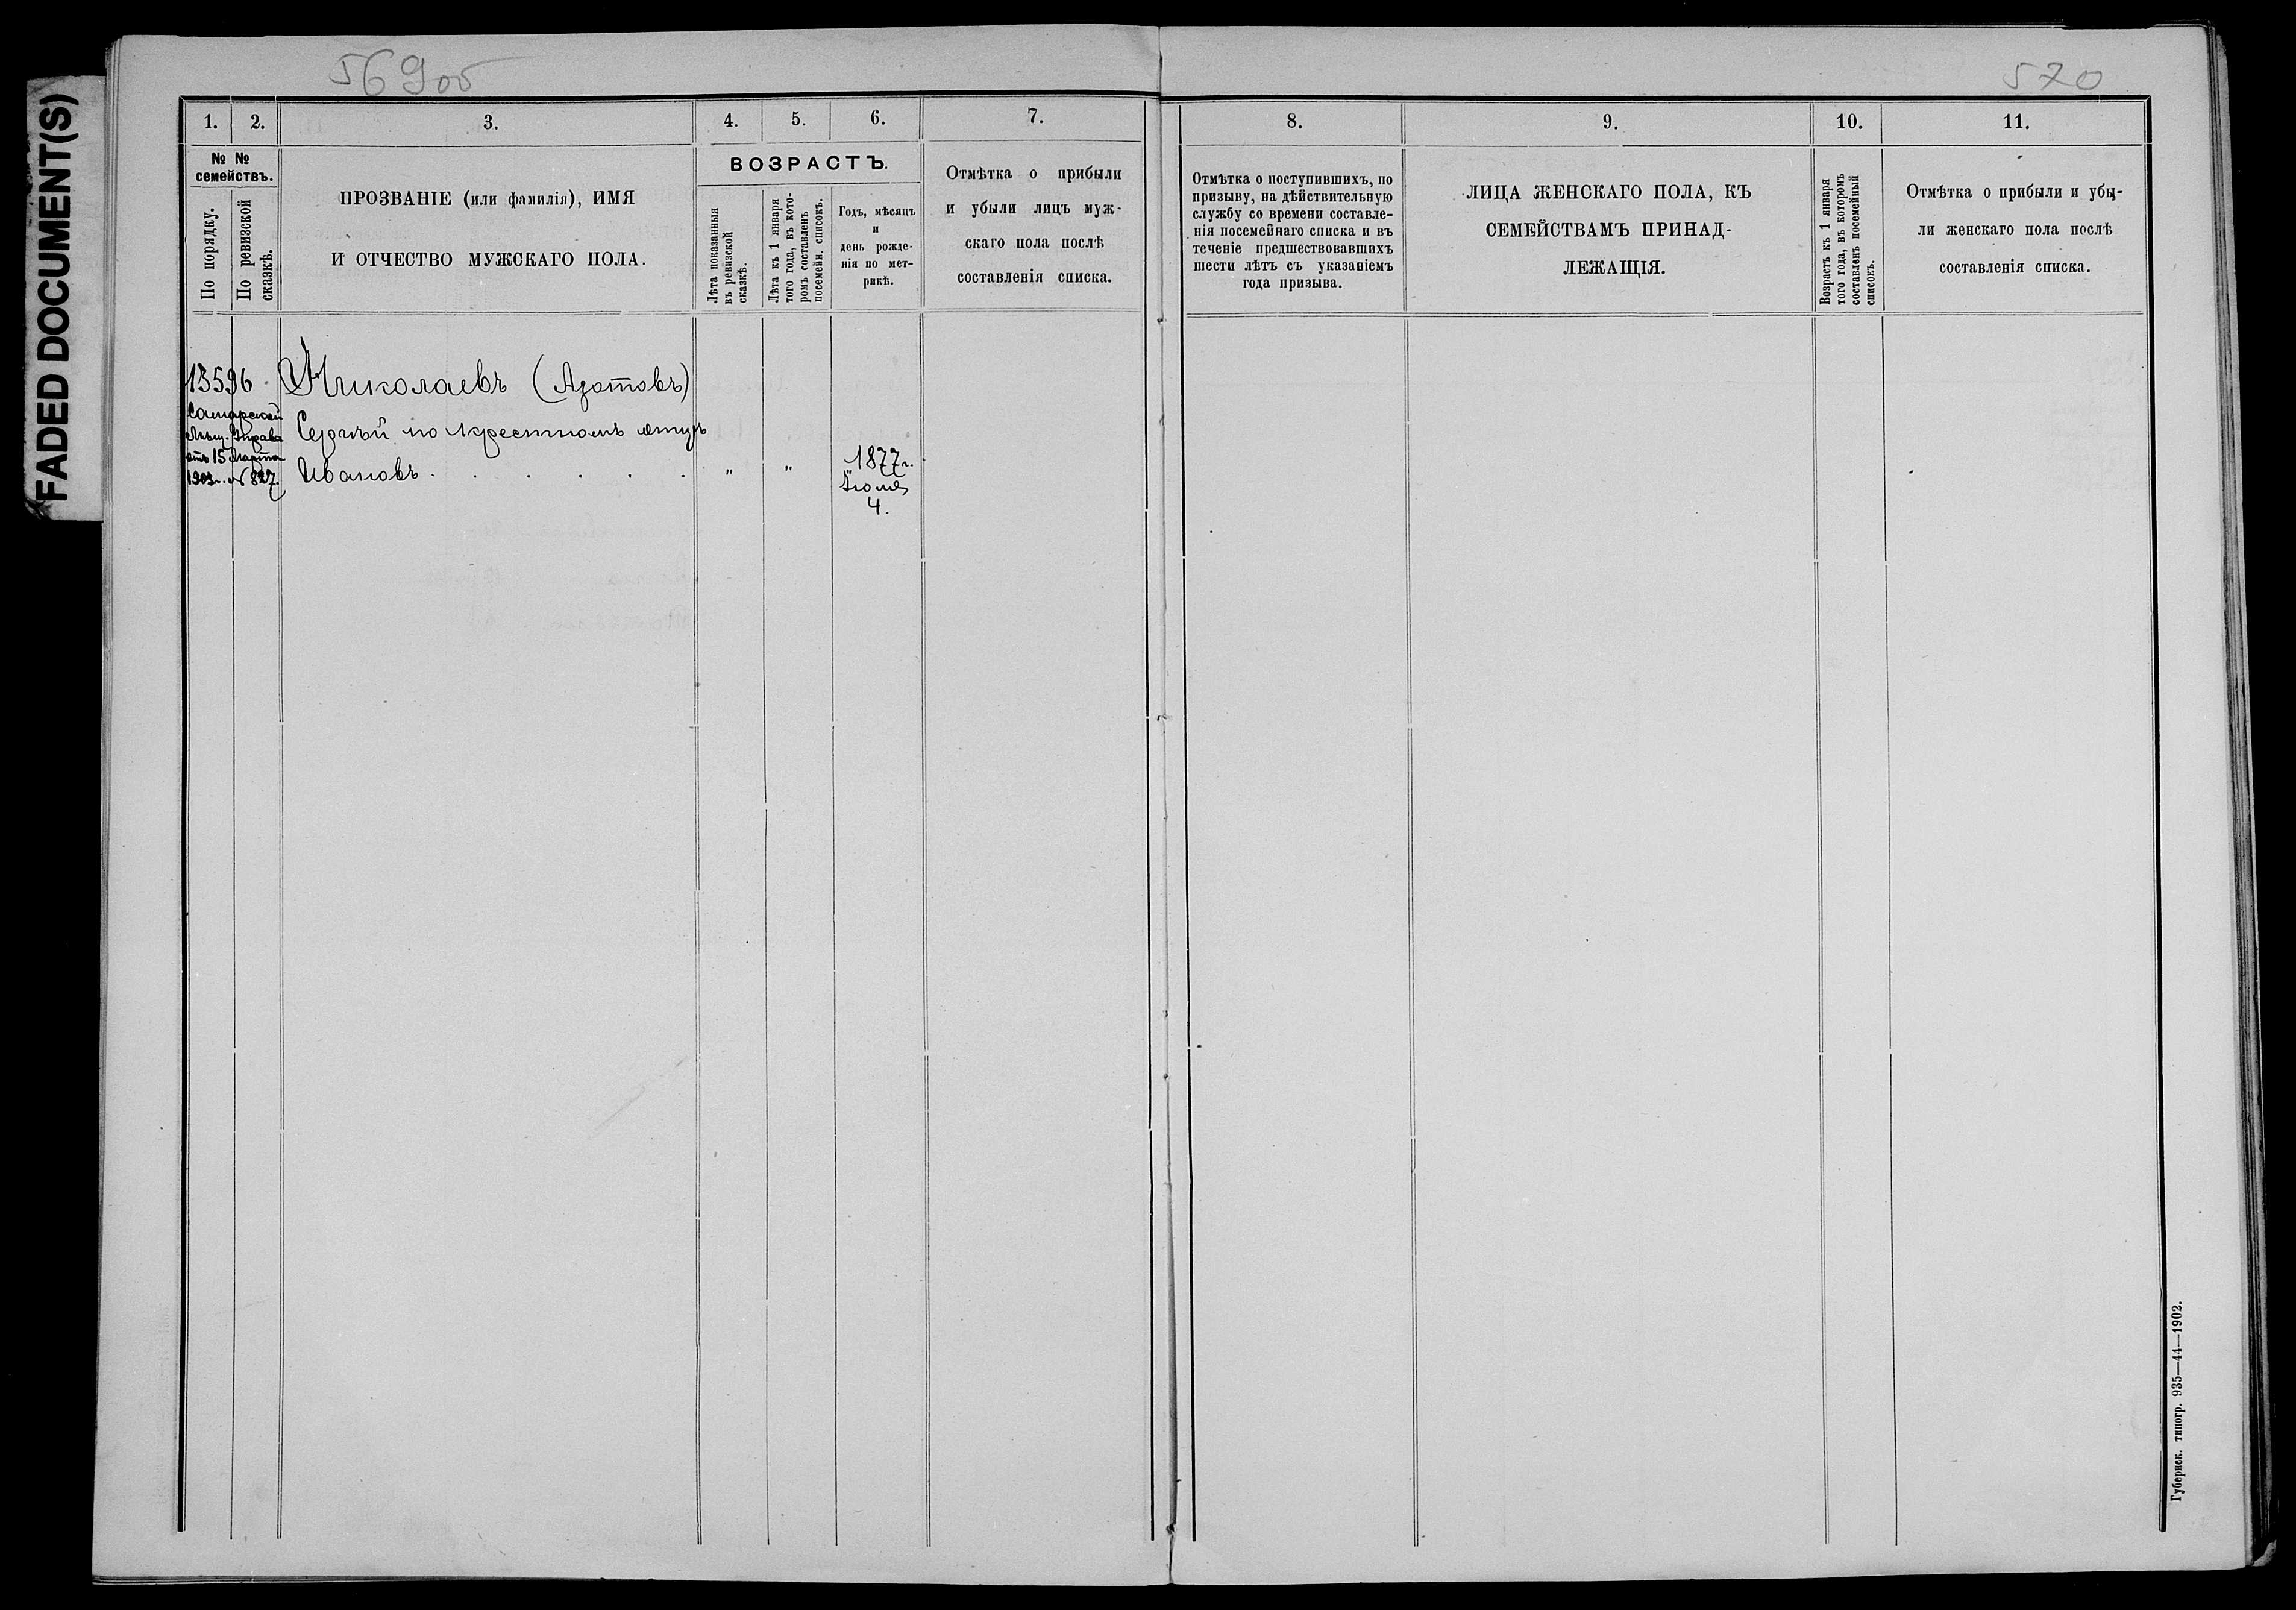 FADED DOCUMENT(S)
569об
570
1. 2. 3. 4. 5. 6. 7. 8. 9. 10. 11.
№ №
семействъ.
По порядку.
По ревизской
сказкѣ.
ПРОЗВАНІЕ (или фамилія), ИМЯ
И ОТЧЕСТВО МУЖСКАГО ПОЛА.
ВОЗРАСТЪ.
Лѣта показанныя
въ ревизской
сказкѣ.
Лѣта къ 1 января
того года, въ кото-
ромъ составленъ
посемейн. списокъ.
Годъ, мѣсяцъ
и
день рожде-
нія по мет-
рикѣ.
Отмѣтка о прибыли
и убыли лицъ муж-
скаго пола послѣ
составленія списка.
Отмѣтка о поступившихъ, по
призыву, на дѣйствительную
службу со времени составле-
нія посемейнаго списка и въ
теченіе предшествовавшихъ
шести лѣтъ съ указаніемъ
года призыва.
ЛИЦА ЖЕНСКАГО ПОЛА, КЪ
СЕМЕЙСТВАМЪ ПРИНАД-
ЛЕЖАЩІЯ.
Возрастъ къ 1 января
того года, въ которомъ
составленъ посемейный
списокъ.
Отмѣтка о прибыли и убы-
ли женскаго пола послѣ
составленія списка.
13596
Самарской
Мѣщ. Управы
отъ 15 Марта
1903 г. № 827
Николаевъ (Агатовъ)
Сергѣй по крестномъ отцѣ
Ивановъ . . . . . . " "
1877 г.
Іюля
4.
Губернск. типогр. 935—44—1902.